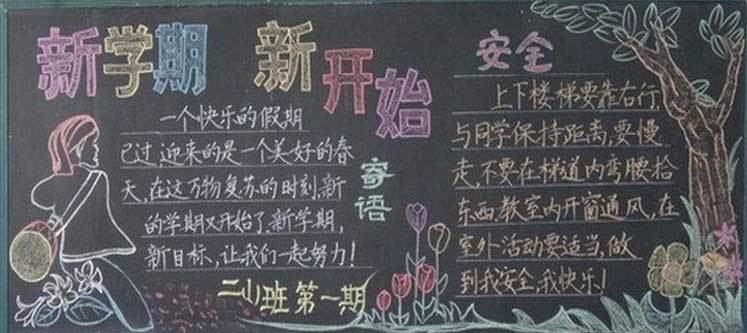 新学期 新开始
一个快乐的假期
已过,迎来的是一个美好的春
天,在这万物复苏的时刻,新
的学期又开始了,新学期,
新目标,让我们一起努力!
寄语
二(1)班第一期
安全
上下楼梯要靠右行,
与同学保持距离,要慢
走,不要在梯道内弯腰拾
东西,教室内开窗通风,在
室外活动要适当,做
到我安全,我快乐!